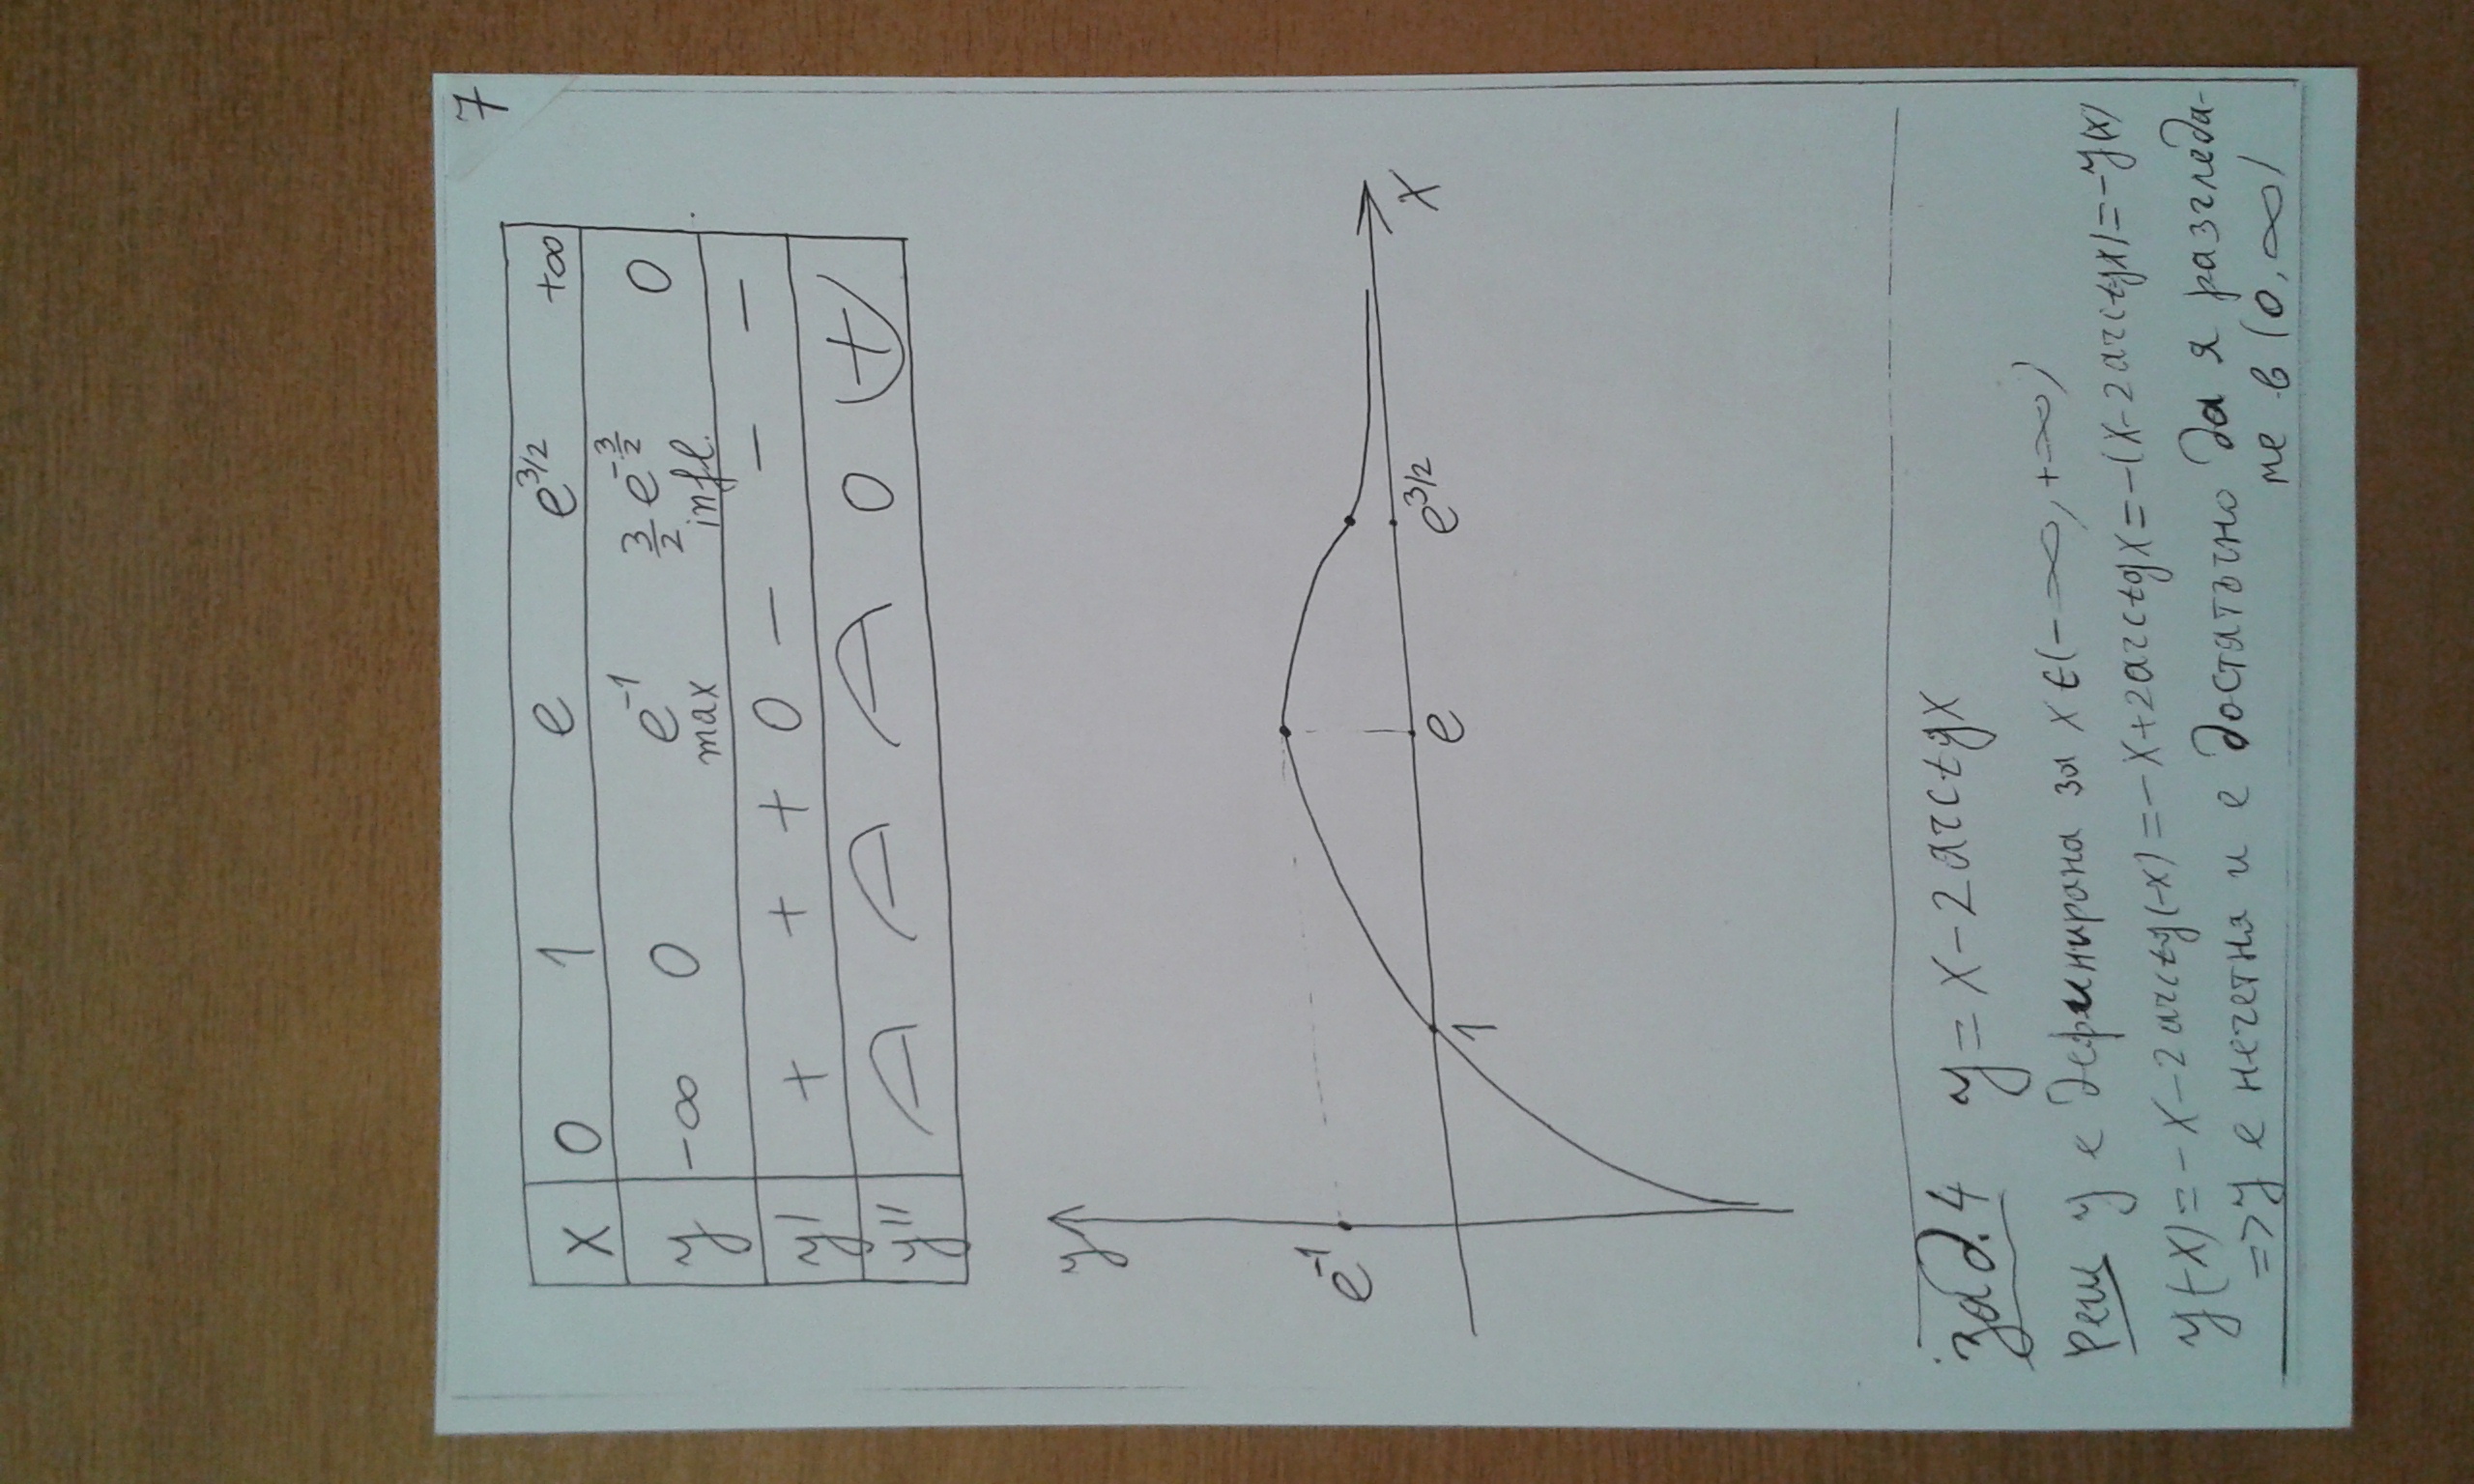 7
x 0 1 e e^{3/2} +∞
y -∞ 0 e^{-1} max 3/2 e^{-3/2} infl. 0
y' + + + 0 − − −
y'' − − − 0 +
y
e^{-1}
1 e e^{3/2} x
зад.4 y = x - 2 arctg x
Реш y е дефинирана за x ∈ (-∞, +∞)
y(-x) = -x - 2 arctg(-x) = -x + 2 arctg x = -(x - 2 arctg x) = -y(x)
=> y е нечетна и е достатъчно да я разгледа-
ме в (0, ∞)